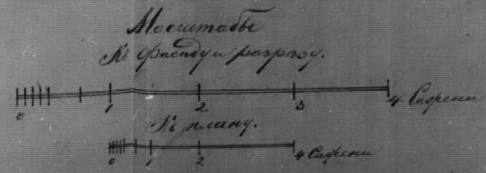 Масштабы
Къ фасаду и разрѣзу.
0 1 2 3 4 Сажени
Къ плану.
0 1 2 4 Сажени